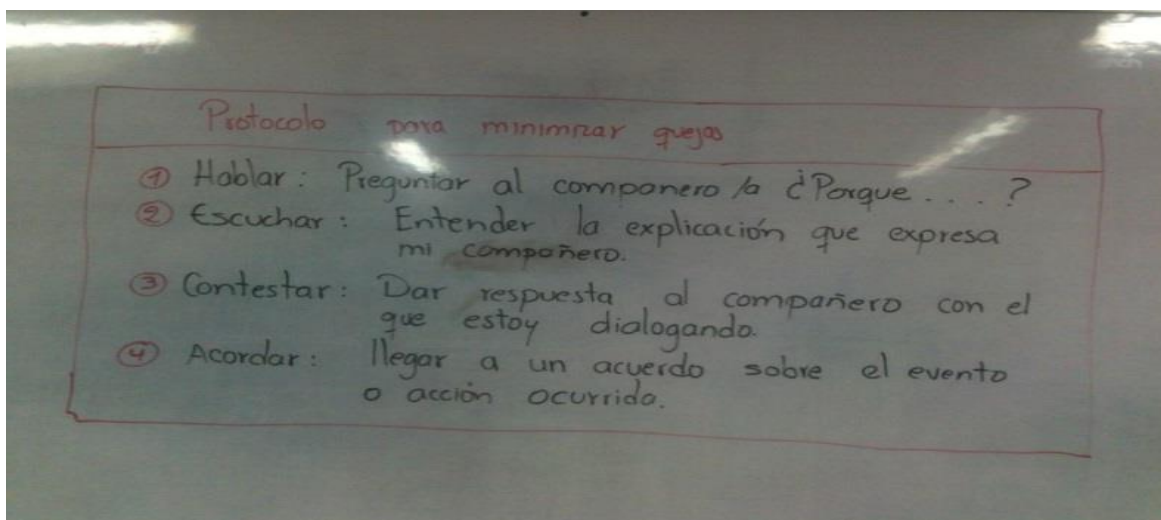 Protocolo para minimizar quejas
① Hablar: Preguntar al compañero/a ¿Porque . . . ?
② Escuchar: Entender la explicación que expresa
mi compañero.
③ Contestar: Dar respuesta al compañero con el
que estoy dialogando.
④ Acordar: llegar a un acuerdo sobre el evento
o acción ocurrida.